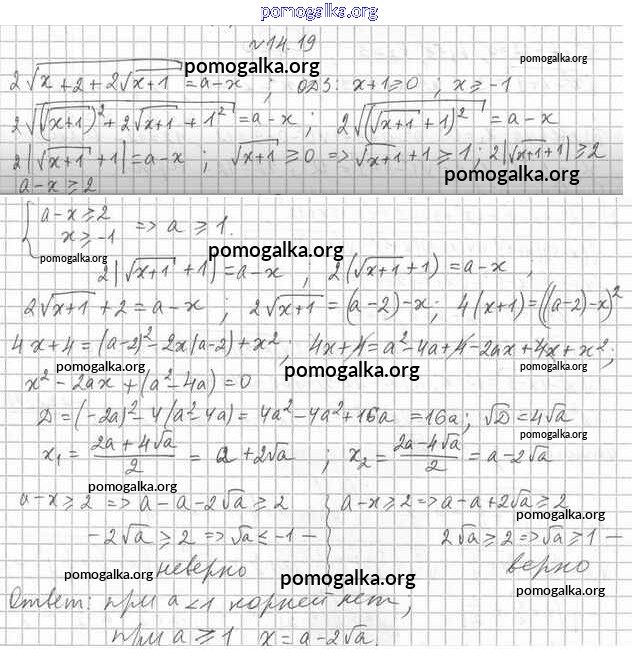 pomogalka.org
№14.19
pomogalka.org
pomogalka.org
2√(x+2+2√(x+1)) = a-x ; ОДЗ: x+1≥0 ; x≥-1
pomogalka.org
2√((√(x+1))²+2√(x+1)+1²) = a-x ; 2√((√(x+1)+1)²) = a-x
2|√(x+1)+1| = a-x ; √(x+1) ≥ 0 => √(x+1)+1 ≥ 1 ; 2|√(x+1)+1| ≥ 2
pomogalka.org
a-x ≥ 2
{ a-x ≥ 2
x ≥ -1 => a ≥ 1.
pomogalka.org
pomogalka.org
2|√(x+1)+1| = a-x , 2(√(x+1)+1) = a-x ;
2√(x+1)+2 = a-x ; 2√(x+1) = (a-2)-x ; 4(x+1) = ((a-2)-x)²
pomogalka.org
4x+4 = (a-2)²-2x(a-2)+x² ; 4x+4 = a²-4a+4-2ax+4x+x² ;
pomogalka.org pomogalka.org pomogalka.org
x²-2ax+(a²-4a) = 0
D = (-2a)²-4(a²-4a) = 4a²-4a²+16a = 16a ; √D = 4√a
pomogalka.org pomogalka.org
x₁ = (2a+4√a)/2 = a+2√a ; x₂ = (2a-4√a)/2 = a-2√a
pomogalka.org
a-x ≥ 2 => a-a-2√a ≥ 2 a-x ≥ 2 => a-a+2√a ≥ 2
pomogalka.org
-2√a ≥ 2 => √a ≤ -1 - 2√a ≥ 2 => √a ≥ 1 -
неверно верно
pomogalka.org pomogalka.org pomogalka.org
Ответ: при a<1 корней нет,
при a ≥ 1 x = a-2√a.
pomogalka.org